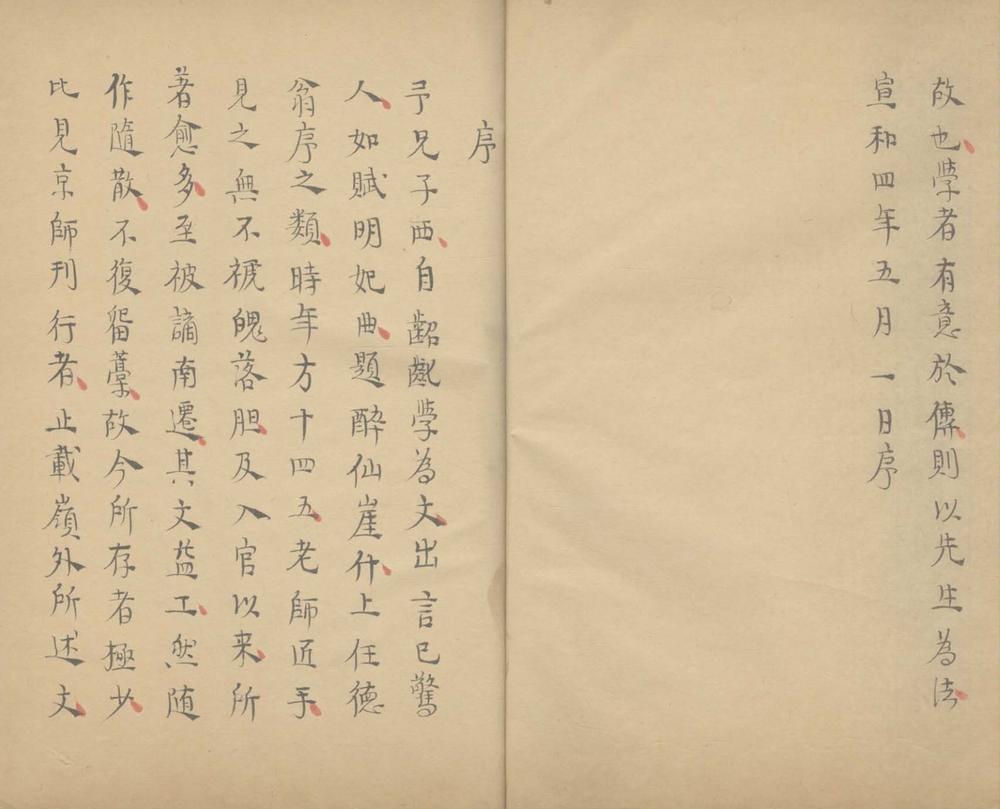 故也學者有意於傳則以先生為法
宣和四年五月一日序
序
予兄子西自齠齔學為文出言已驚
人如賦明妃曲題醉仙崖什上任德
翁序之類時年方十四五老師匠手
見之無不褫魄落胆及入官以来所
著愈多至被謫南遷其文益工然随
作隨散不復畱藁故今所存者極少
比見京師刊行者止載嶺外所述文